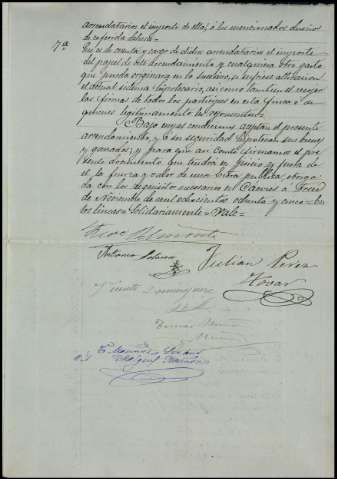 arrendatarios el importe de ellos ó los mencionados dueños
de referida dehesa=
7ª Que es de cuenta y cargo de dichos arrendatarios el importe
del papel de este arrendamiento y cualquiera otro gasto
que pueda originarse en lo sucesivo, si sufriese alteracion
el actual sistema hipotecario, asi como tambien el recojer
las firmas de todos los participes en esta finca ó de
quienes legitimamente los representen=
Bajo cuyas condiciones aceptan el presente
arrendamiento, y á su seguridad hipotecan sus bienes
y ganados, y para que asi conste firmamos el pre-
sente documento que tendrá en juicio y fuera de
él la fuerza y valor de una Escritura publica, otorga
da con los requisitos necesarios en Caceres á Trece
de Noviembre de mil ochocientos ochenta y cinco= En
tre lineas= Solidariamente= Vale=
Antonio
Julian Perez
Tovar
Vicente Dominguez
Tomas
Miguel